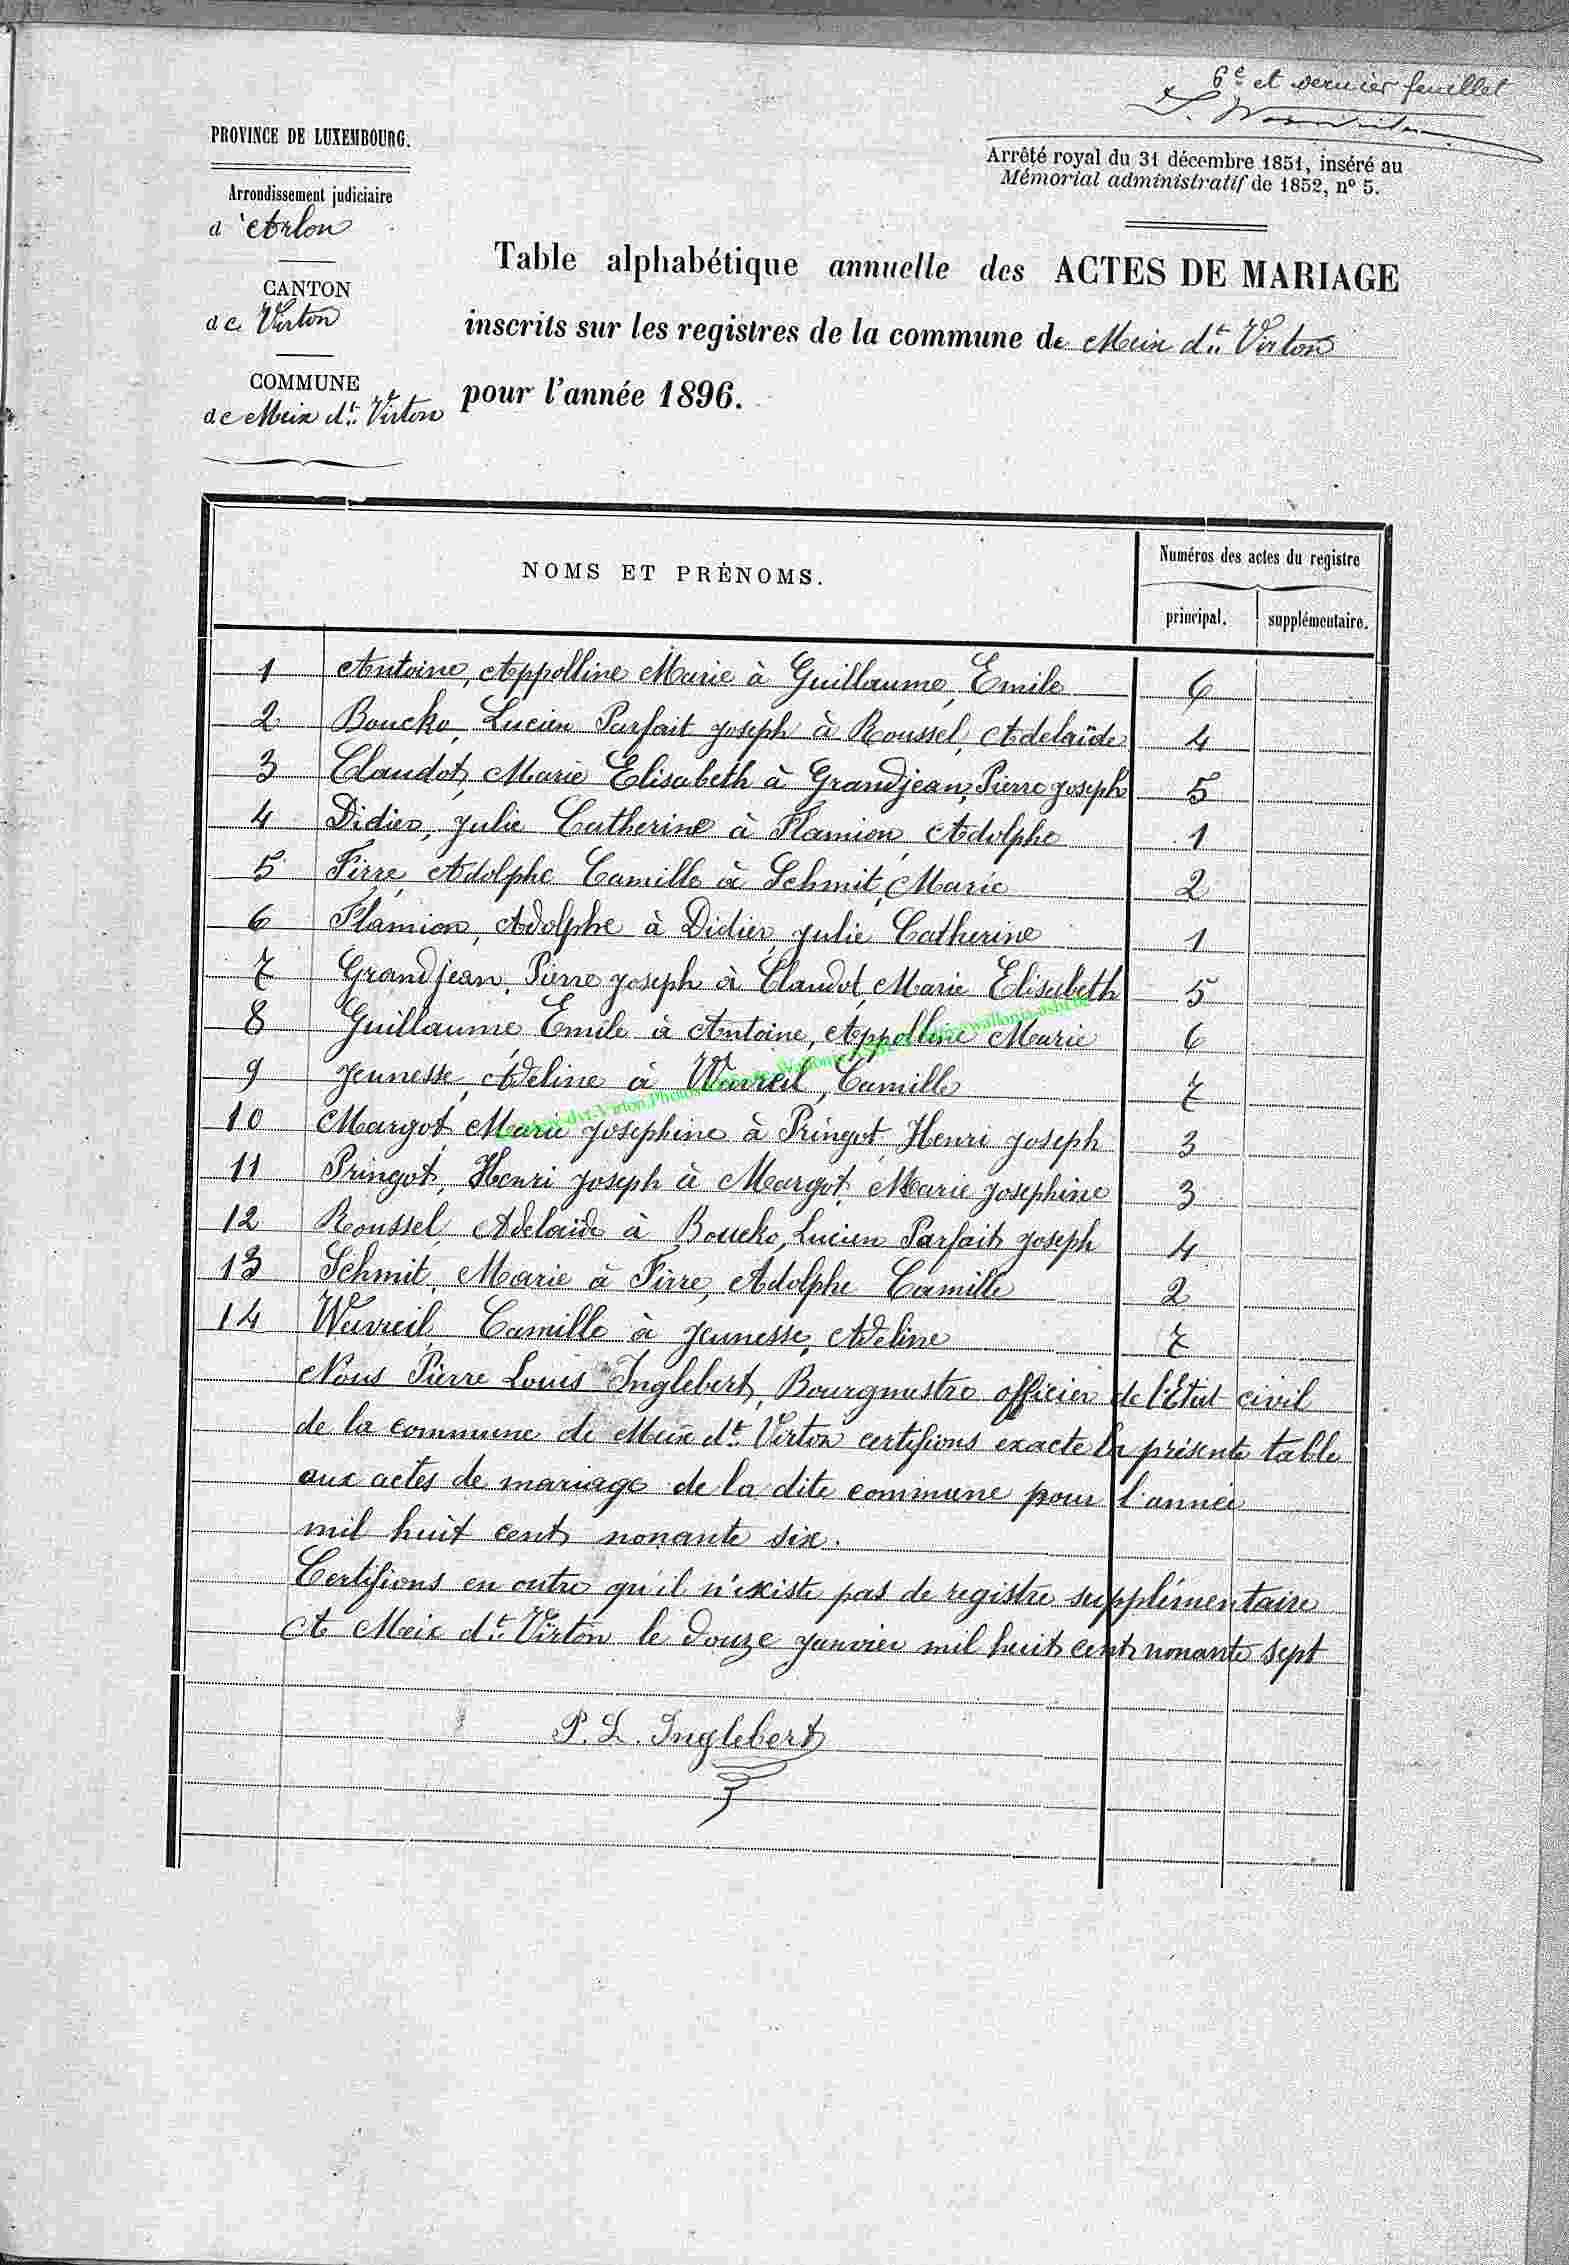 6e et dernier feuillet
PROVINCE DE LUXEMBOURG.
Arrêté royal du 31 décembre 1851, inséré au
Mémorial administratif de 1852, n° 5.
Arrondissement judiciaire
d'Arlon
CANTON
de Virton
COMMUNE
de Meix dt Virton
Table alphabétique annuelle des ACTES DE MARIAGE
inscrits sur les registres de la commune de Meix dt Virton
pour l'année 1896.
NOMS ET PRÉNOMS.
Numéros des actes du registre
principal. supplémentaire.
1 Antoine, Appolline Marie à Guillaume, Emile 6
2 Boucko, Lucien Parfait Joseph à Roussel, Adelaïde 4
3 Claudot, Marie Elisabeth à Grandjean, Pierre Joseph 5
4 Didier, Julie Catherine à Flamion, Adolphe 1
5 Firre, Adolphe Camille à Schmit, Marie 2
6 Flamion, Adolphe à Didier, Julie Catherine 1
7 Grandjean, Pierre Joseph à Claudot, Marie Elisabeth 5
8 Guillaume Emile à Antoine, Appolline Marie 6
9 Jeunesse, Adeline à Wavreil, Camille 7
10 Margot, Marie Josephine à Pringot, Henri Joseph 3
11 Pringot, Henri Joseph à Margot, Marie Josephine 3
12 Roussel, Adelaïde à Boucko, Lucien Parfait Joseph 4
13 Schmit, Marie à Firre, Adolphe Camille 2
14 Wavreil, Camille à Jeunesse, Adeline 7
Nous Pierre Louis Inglebert, Bourgmestre officier de l'Etat civil
de la commune de Meix dt Virton certifions exacte la présente table
aux actes de mariage de la dite commune pour l'année
mil huit cent nonante six.
Certifions en outre qu'il n'existe pas de registre supplémentaire
A Meix dt Virton le douze janvier mil huit cent nonante sept
P. L. Inglebert